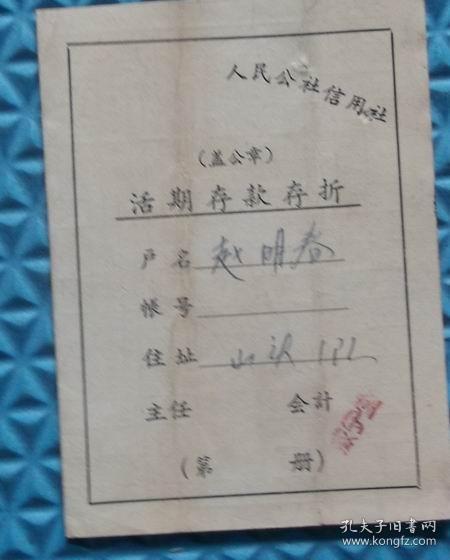 人民公社信用社
(盖公章)
活期存款存折
户名 赵明春
帐号
住址 山头
主任 会計
(第 册)
孔夫子旧书网
www.kongfz.com